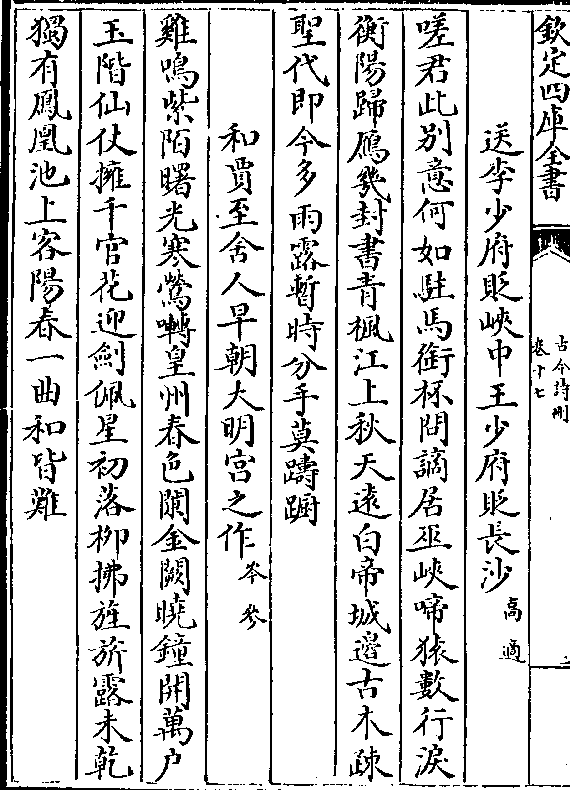 欽定四庫全書
古今詩刪
卷十七
二
送李少府貶峽中王少府貶長沙 高適
嗟君此別意何如駐馬銜杯問謫居巫峽啼猿數行淚
衡陽歸鴈幾封書青楓江上秋天遠白帝城邊古木疎
聖代即今多雨露暫時分手莫躊躇
和賈至舍人早朝大明宮之作 岑參
雞鳴紫陌曙光寒鶯囀皇州春色闌金闕曉鐘開萬户
玉階仙仗擁千官花迎劍佩星初落柳拂旌旂露未乾
獨有鳳凰池上客陽春一曲和皆難